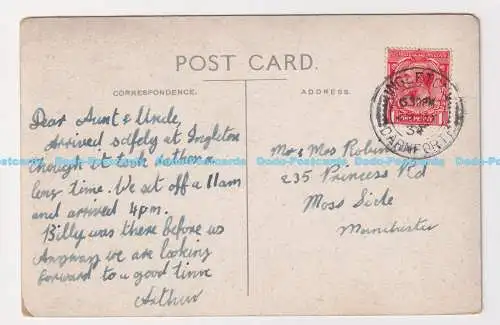 POST CARD.
CORRESPONDENCE.
ADDRESS.
Dear Aunt & Uncle,
Arrived safely at Ingleton
though it took rather a
long time. We set off a 11am
and arrived 4pm.
Billy was there before us
Anyway we are looking
forward to a good time
Arthur
Mr & Mrs
235 Princess Rd
Moss Side
Manchester
INGLETON
6.30PM
34
CARNFORTH
Dado-Postcards Dado-Postcards Dado-Postcards Dado-Postcards